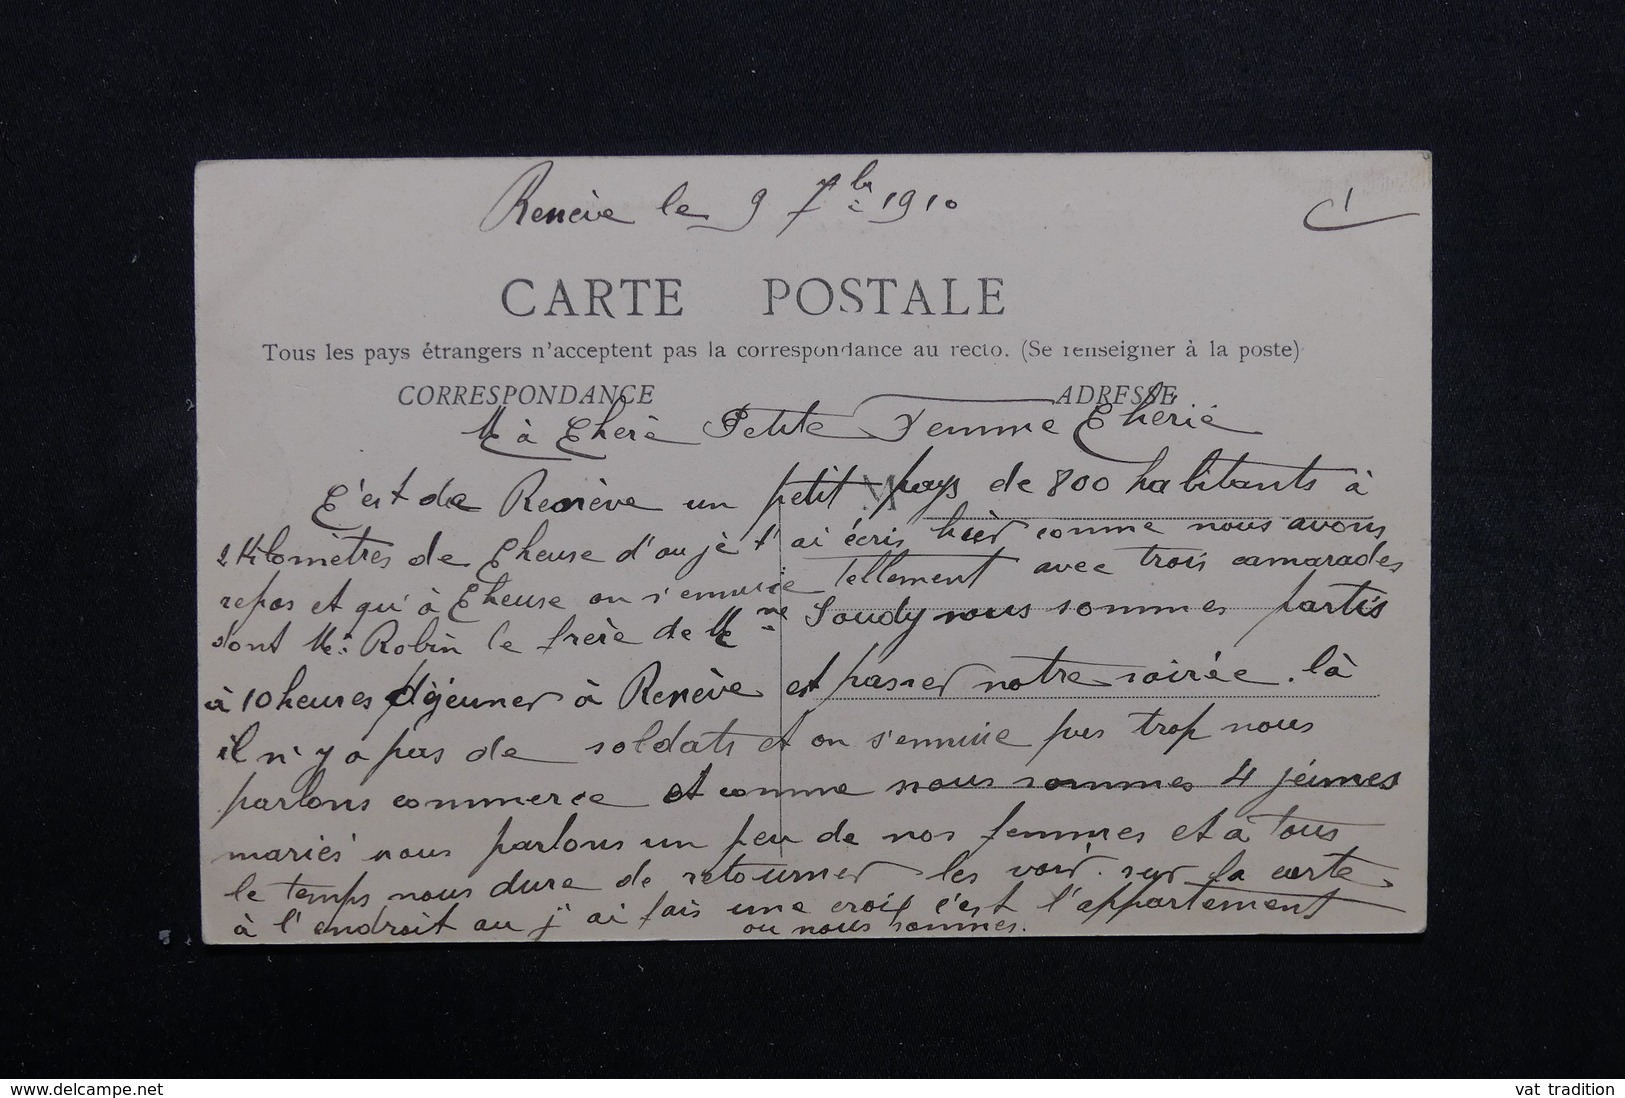 Renève le 9 7bre 1910
1
CARTE POSTALE
Tous les pays étrangers n'acceptent pas la correspondance au recto. (Se renseigner à la poste)
CORRESPONDANCE ADRESSE
Ma Chère Petite Femme Chérie
C'est de Renève un petit pays de 800 habitants à
2 Kilomètres de Cheuse d'ou je t'ai écris hier comme nous avons
repos et qu'à Cheuse on s'ennuie tellement avec trois camarades
dont Mr Robin le frère de Mme Soudy nous sommes partis
à 10 heures déjeuner à Renève et passer notre soirée. là
il n'y a pas de soldats et on s'ennuie pas trop nous
parlons commerce et comme nous sommes 4 jeunes
mariés nous parlons un peu de nos femmes et à tous
le temps nous dure de retourner les voir. sur la carte
à l'endroit ou j'ai fais une croix c'est l'appartement
ou nous sommes.
www.delcampe.net
vat tradition